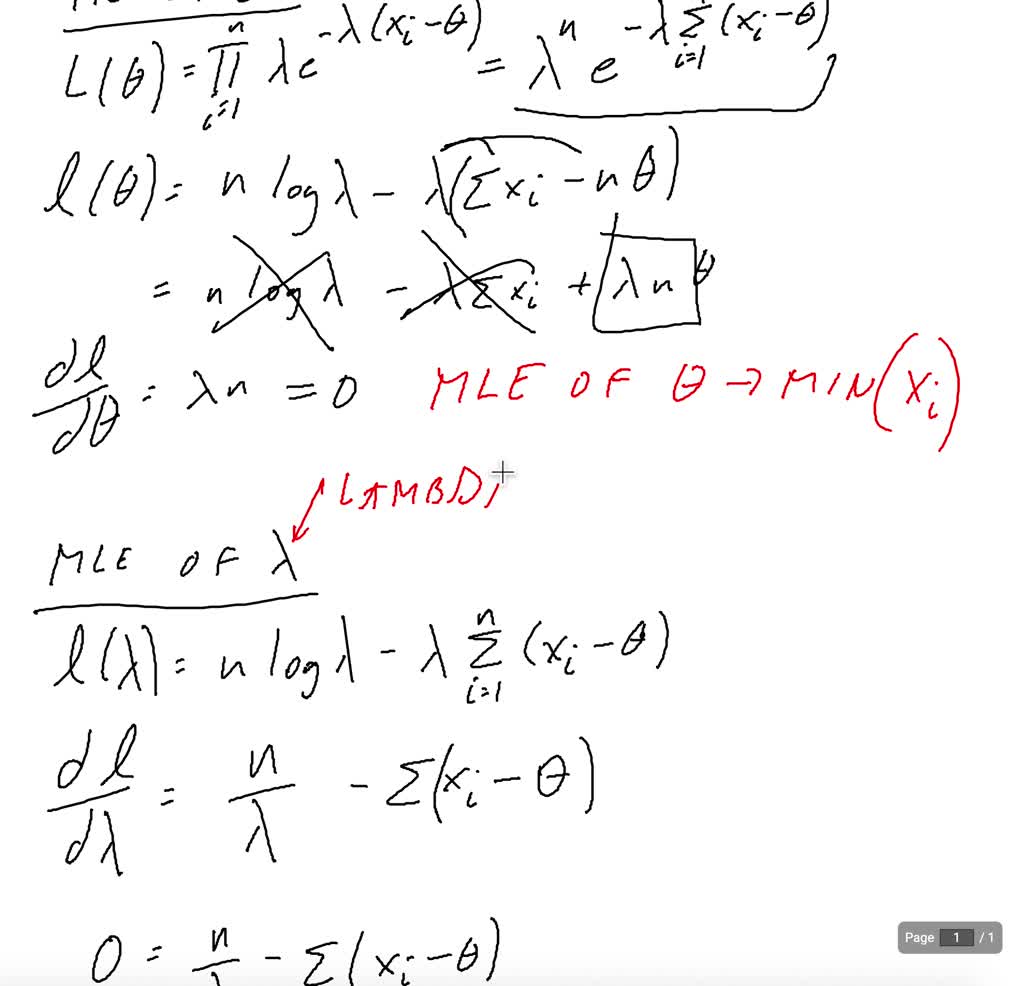 L(θ) = ∏ᵢ₌₁ⁿ λe^(-λ(xᵢ-θ)) = λⁿ e^(-λ Σᵢ₌₁ (xᵢ-θ))
l(θ) = n log λ - λ(Σxᵢ - nθ)
= n log λ - λΣxᵢ + λn θ
dl/dθ = λn = 0 MLE OF θ → MIN(Xᵢ)
LAMBD
MLE OF λ
l(λ) = n log λ - λ Σᵢ₌₁ⁿ (xᵢ - θ)
dl/dλ = n/λ - Σ(xᵢ - θ)
0 = n/λ - Σ(xᵢ - θ)
Page 1 / 1